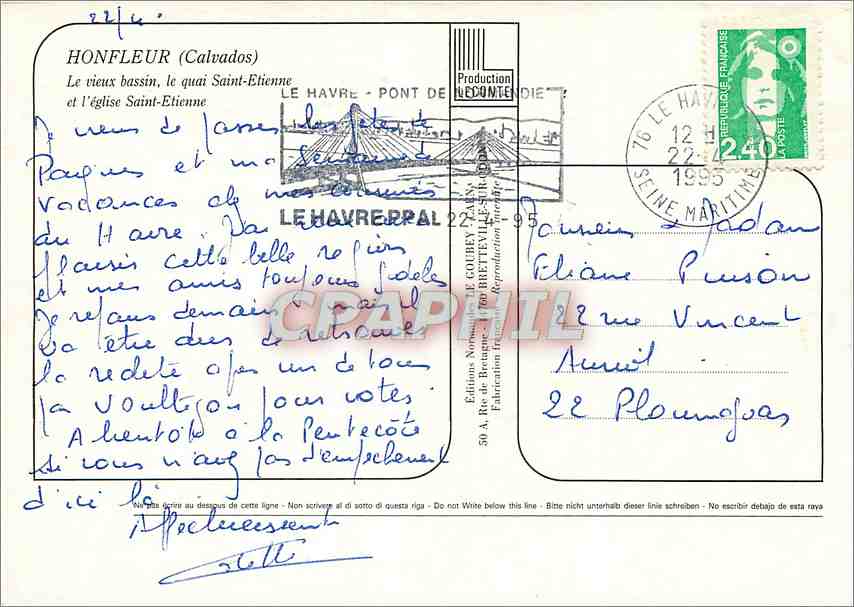 22/4.
HONFLEUR (Calvados)
Le vieux bassin, le quai Saint-Etienne
et l'église Saint-Etienne
Production
LECONTE
LE HAVRE - PONT DE NORMANDIE
LE HAVRE PPAL 22-4-95
76 LE HAVRE
12 H
22-4
1995
SEINE MARITIME
REPUBLIQUE FRANÇAISE
2,40
LA POSTE
Je viens de passer les fêtes de
Pâques et ma semaine de
vacances chez mes
du Havre. J'ai
plaisir cette belle région
et mes amis toujours fidèles
Je repars demain
va être dur de retrouver
la après un détour
par pour voter.
A bientôt à la Pentecôte
si vous n'avez pas d'empêchement
d'ici là
Affectueusement
Monsieur & Madame
Eliane Pinson
22 rue Vincent
Auriol
22 Ploumagoar
Editions Normandes LE GOUBEY - CAEN
50 A, Rie de Bretagne - 14760 BRETTEVILLE-SUR-ODON
Fabrication française - Reproduction interdite
CPAPHIL
Ne pas écrire au dessous de cette ligne - Non scrivere al di sotto di questa riga - Do not Write below this line - Bitte nicht unterhalb dieser linie schreiben - No escribir debajo de esta raya